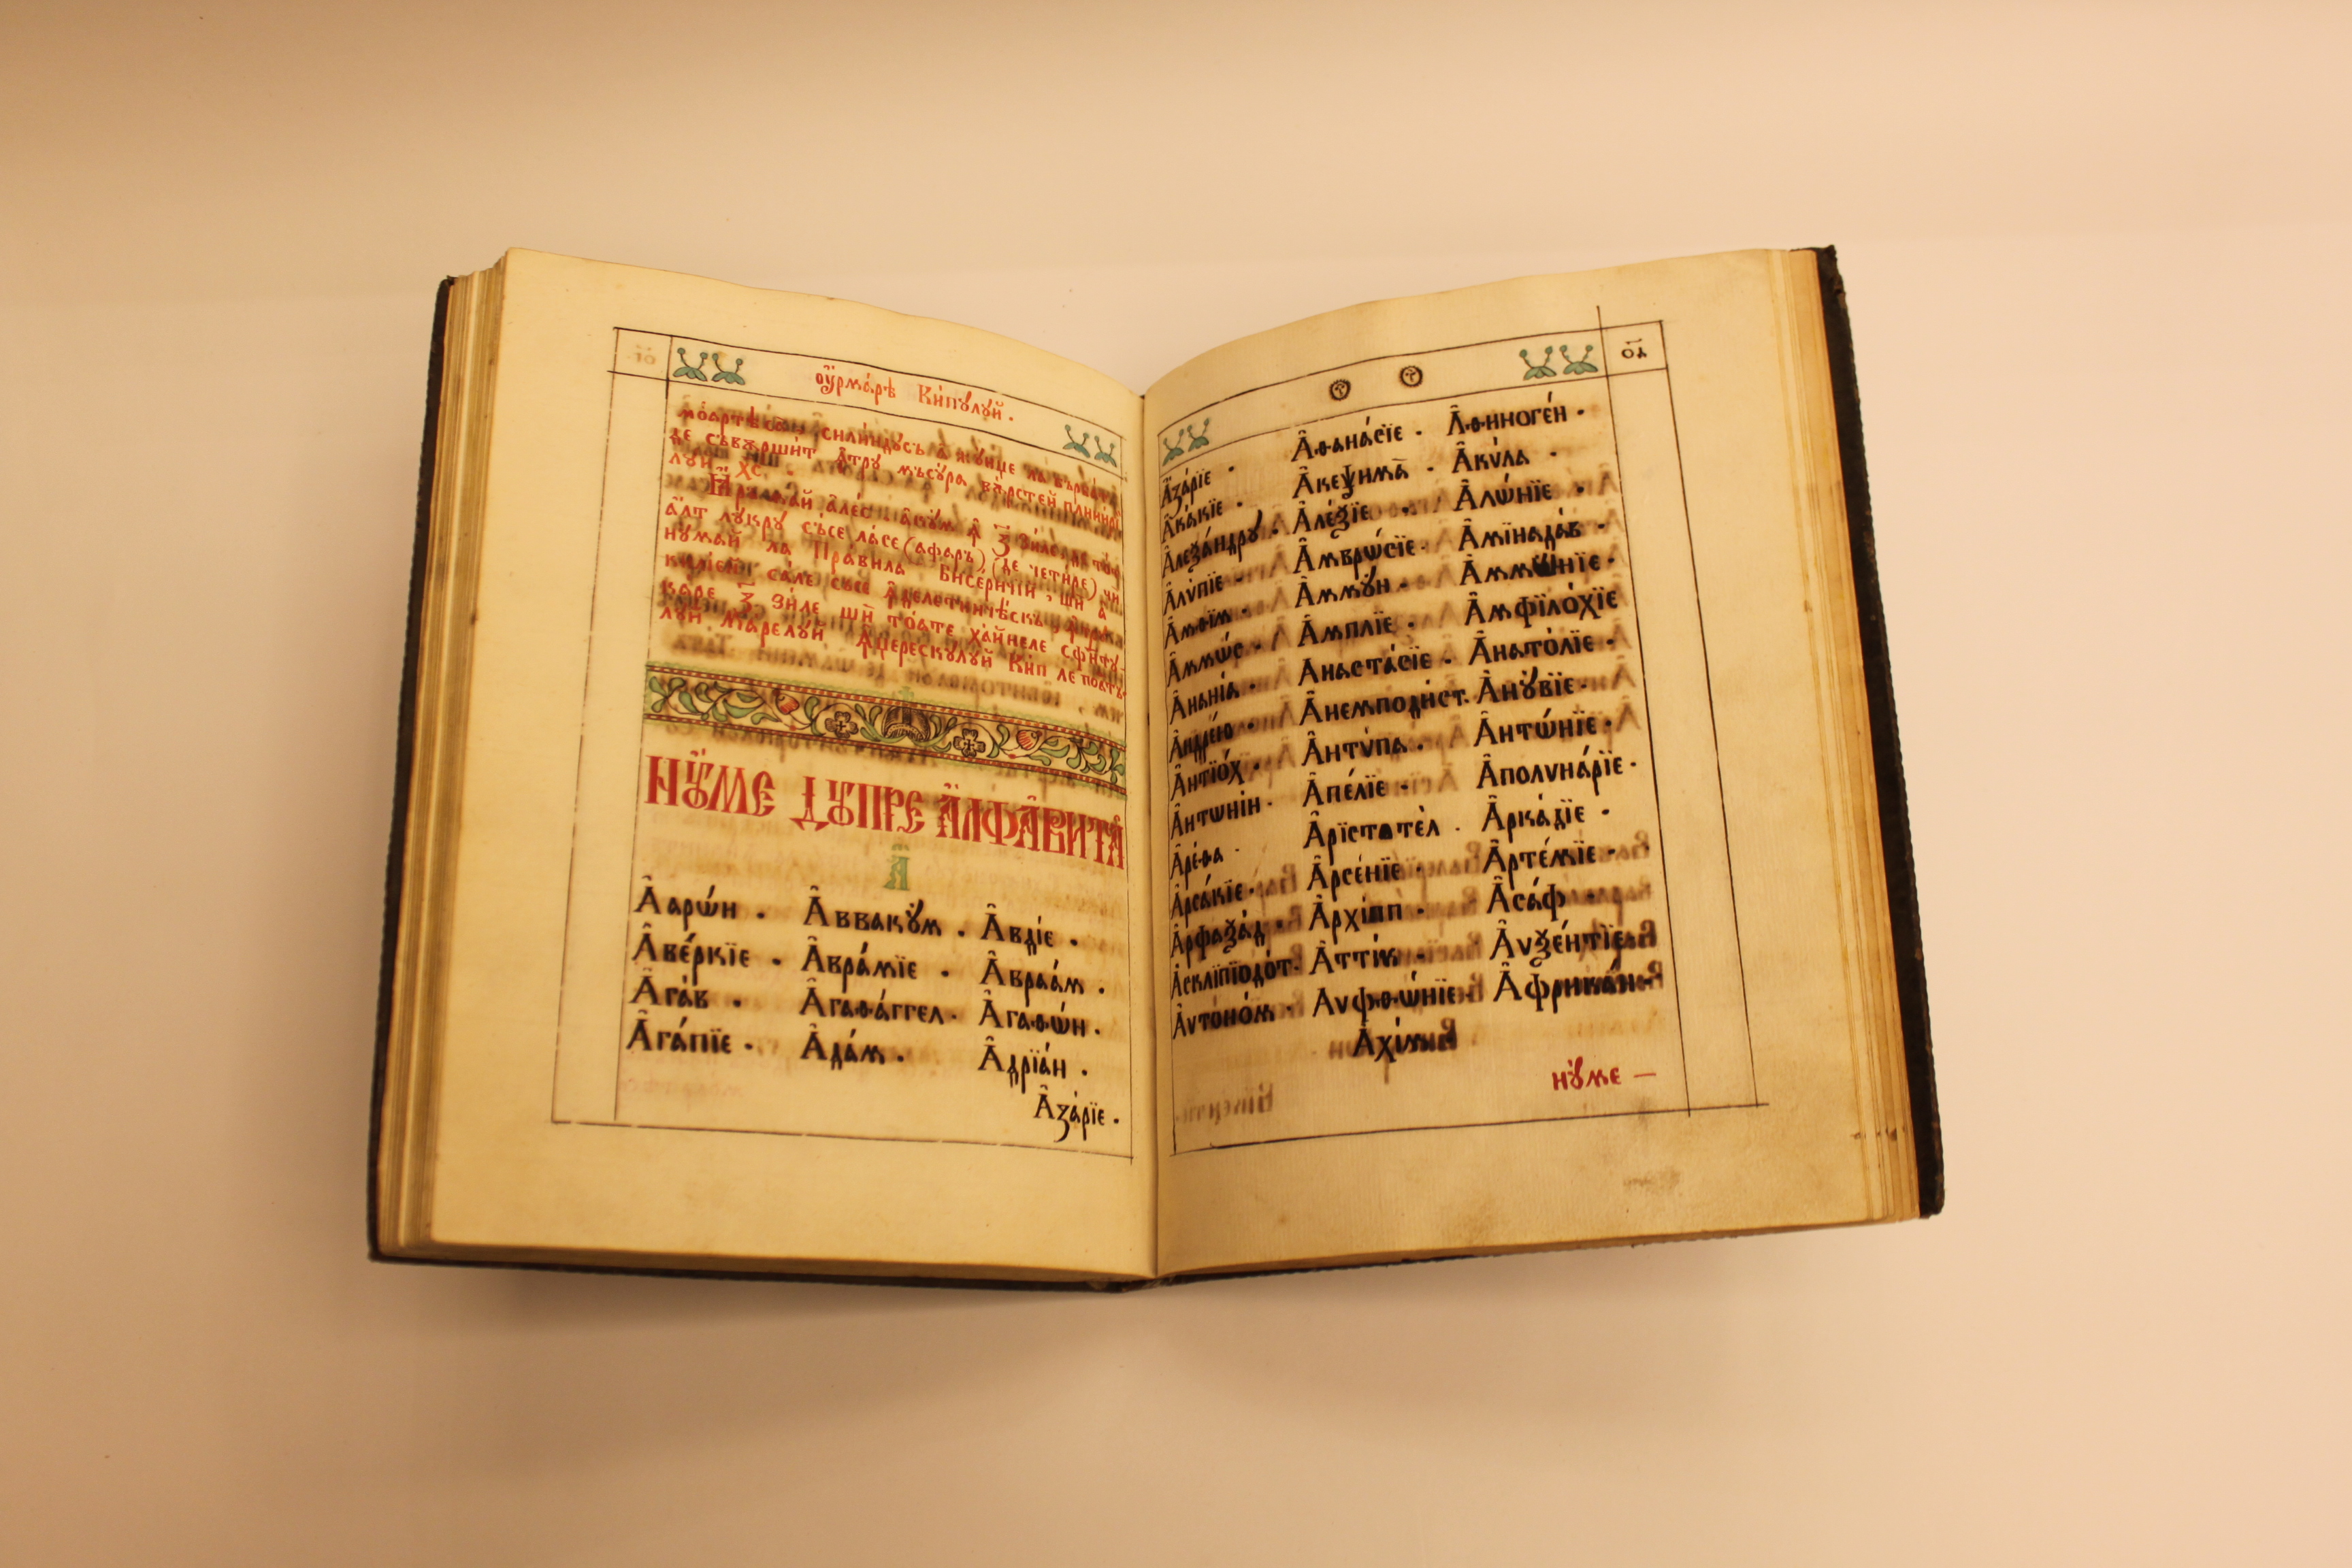 Оу҆рма́рѣ Ки́пꙋлꙋй.
моартѣса, силиндꙋсъ а ажꙋнџе ла бърбат
де съвѫршит ꙟтрꙋ мъсꙋра вѫрстей плинирй
лꙋй хс.
алт лꙋкрꙋ съсе ласе (афаръ) (де четиле), чи
нꙋмай ла Правила Бисеричїй, шй а
килїей сале съсе ꙟделетничѣскъ
каре з зиле шй тоате хайнеле сфѫтꙋ-
лꙋй Марелꙋй ꙟџерескꙋлꙋй Кип ле поатъ
НꙊМЕ ДꙊПРЕ А҆ЛФАВИТА
А҆
А҆арѡ́н . А҆ввакꙋ́м . А҆вді́е .
А҆ве́ркїе . А҆вра́мїе . А҆враа́м .
А҆га́в . А҆гаѳа́ггел . А҆гаѳѡ́н .
А҆га́пїе . А҆да́м . А҆дрїа́н .
А҆за́рїе .
о҃а
А҆за́рїе . А҆ѳана́сїе . А҆ѳиноге́н .
А҆ка́кїе . А҆кеѱима̀ . А҆кѵ́ла .
А҆леѯа́ндрꙋ . А҆ле́ѯїе . А҆лѡ́нїе .
А҆лѵ́пїе . А҆мврѡ́сїе . А҆мїнада́в .
А҆мѳїм . А҆ммꙋ́н . А҆ммѡ́нїе .
А҆ммѡ́с . А҆мплїе . А҆мфїло́хїе
А҆нані́а . А҆наста́сїе . А҆нато́лїе .
А҆ндре́ю . А҆немподи́ст . А҆нꙋ́вїе .
А҆нтїо́х . А҆нтѵ́па . А҆нтѡ́нїе .
А҆нтѡні́н . А҆пе́лїе . А҆полѵна́рїе .
А҆ре́ѳа . А҆рїстоте́л . А҆рка́дїе .
А҆рса́кїе . А҆рсе́нїе . А҆рте́мїе .
А҆рфаѯа́д . А҆рхі́пп . А҆са́ф .
А҆склїпїодо́т . А҆тті́к . А҆ѵѯе́нтїе .
А҆ѵтоно́м . А҆ѵфѳѡ́нїе . А҆фрика́н .
нꙋ́ме —